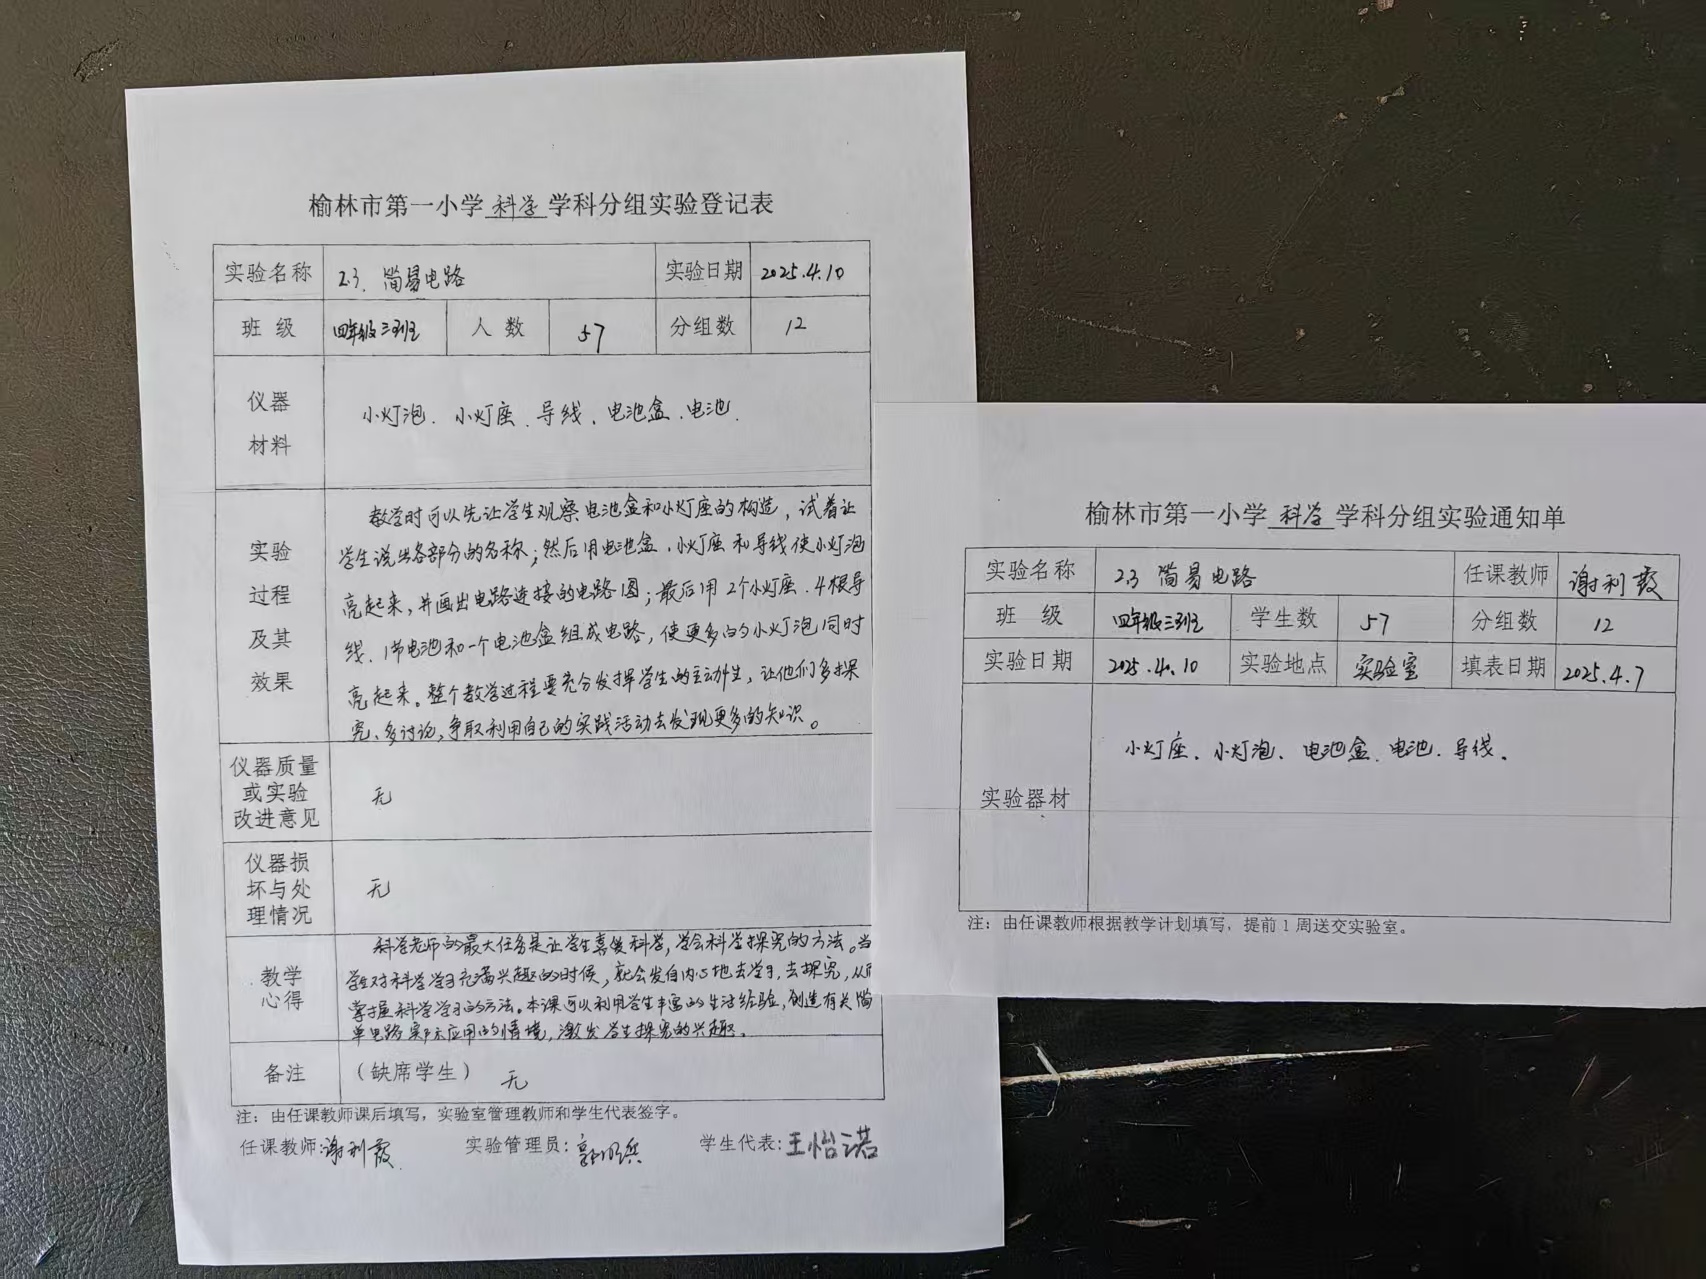 榆林市第一小学科学学科分组实验登记表
实验名称 2.3、简易电路 实验日期 2025.4.10
班 级 四年级三班 人 数 57 分组数 12
仪器
材料
小灯泡、小灯座、导线、电池盒、电池.
实验
过程
及其
效果
教学时可以先让学生观察电池盒和小灯座的构造，试着让
学生说出各部分的名称；然后用电池盒、小灯座和导线使小灯泡
亮起来，并画出电路连接的电路图；最后用2个小灯座、4根导
线、1节电池和一个电池盒组成电路，使更多的小灯泡同时
亮起来。整个教学过程要充分发挥学生的主动性，让他们多探
究、多讨论，争取利用自己的实践活动去发现更多的知识。
仪器质量
或实验
改进意见
无
仪器损
坏与处
理情况
无
教学
心得
科学老师的最大任务是让学生喜爱科学，学会科学探究的方法。当
学生对科学学习充满兴趣的时候，就会发自内心地去学习，去探究，从而
掌握科学学习的方法。本课可以利用学生丰富的生活经验，创造有关简
单电路实际应用的情境，激发学生探究的兴趣。
备注 （缺席学生） 无
注：由任课教师课后填写，实验室管理教师和学生代表签字。
任课教师：谢利霞 实验管理员： 学生代表：王怡诺
榆林市第一小学科学学科分组实验通知单
实验名称 2.3 简易电路 任课教师 谢利霞
班 级 四年级三班 学生数 57 分组数 12
实验日期 2025.4.10 实验地点 实验室 填表日期 2025.4.7
实验器材
小灯座、小灯泡、电池盒、电池、导线。
注：由任课教师根据教学计划填写，提前1周送交实验室。